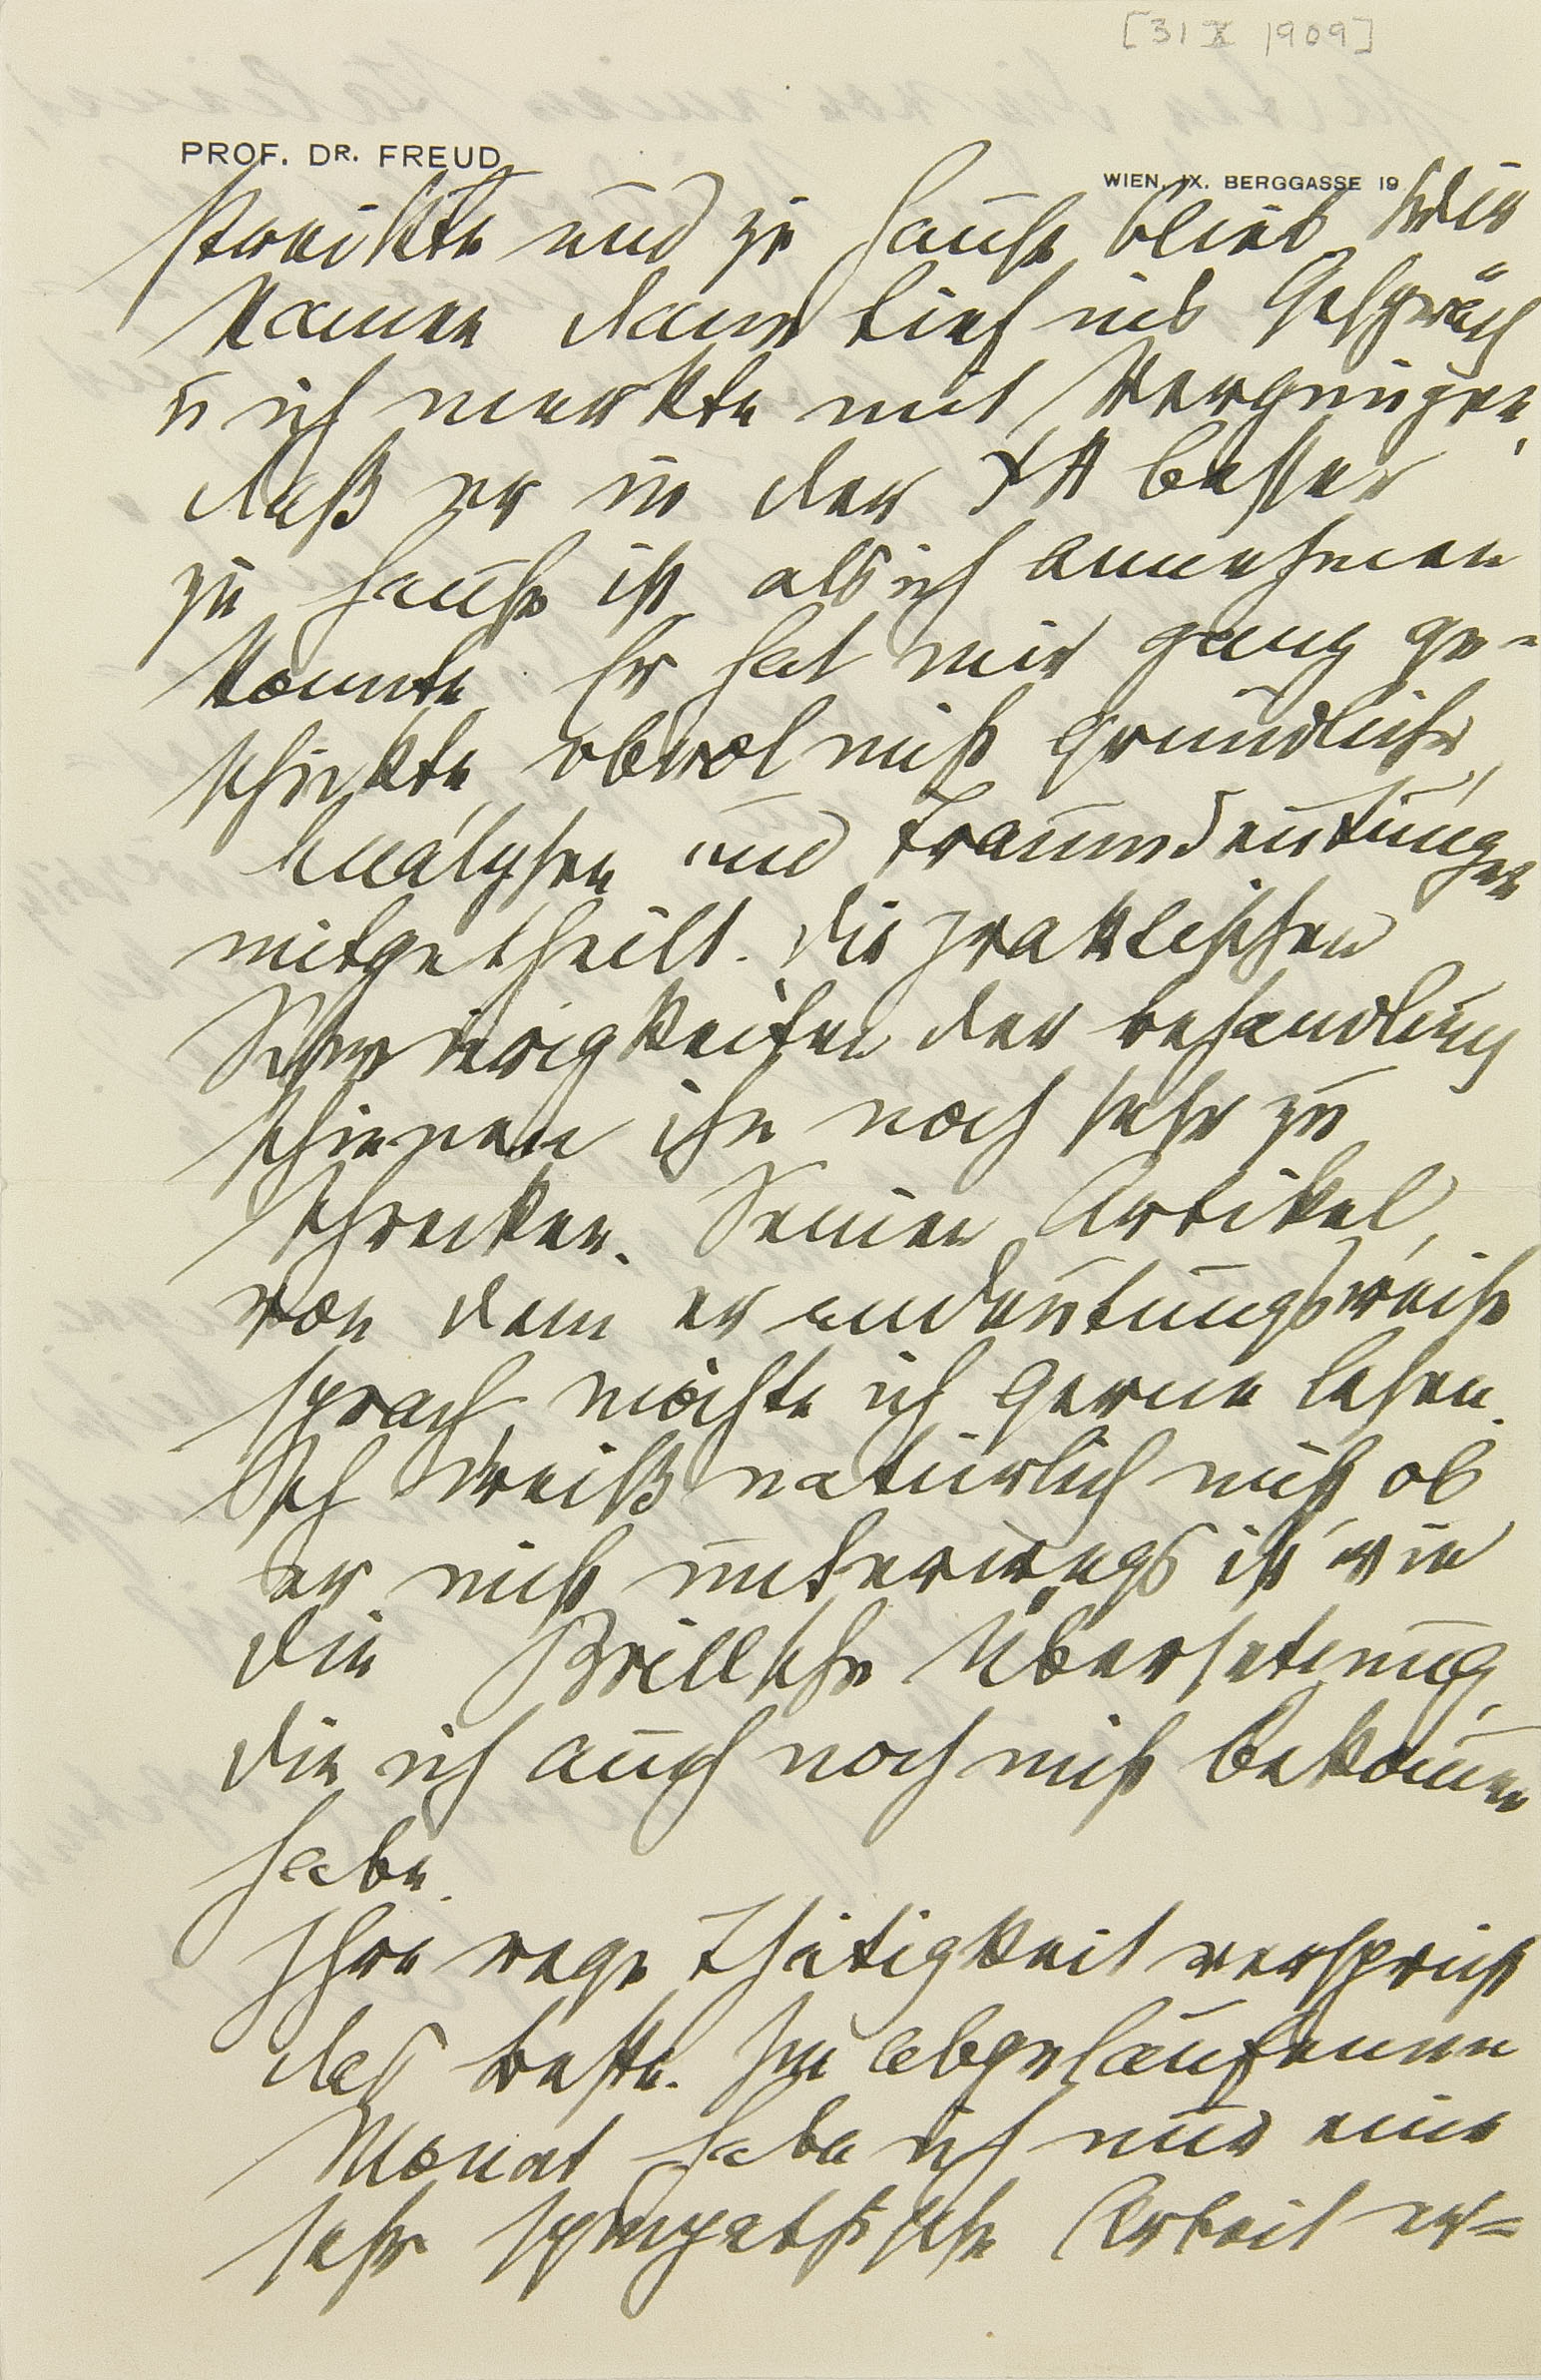 [31 X 1909]
PROF. DR. FREUD
WIEN, IX. BERGGASSE 19
streikte und zu Hause blieb. Wir
kamen dann tief ins Gespräch
u ich merkte mit Vergnügen,
daß er in der ΨA besser
zu Hause ist als ich annehmen
konnte. Er hat mir ganz ge-
schickte, obwol nicht gründliche,
Analysen und Traumdeutungen
mitgetheilt. Die praktischen
Schwierigkeiten der Behandlung
schienen ihn noch sehr zu
schrecken. Seinen Artikel,
von dem er andeutungsweise
sprach, möchte ich gerne lesen.
Ich weiß natürlich nicht ob
er nicht unterwegs ist wie
die Brillsche Übersetzung,
die ich auch noch nicht bekom̄en
habe.
Ihre rege Thätigkeit verspricht
das beste. Im abgelaufenen
Monat habe ich nur eine
sehr sympathische Arbeit er-